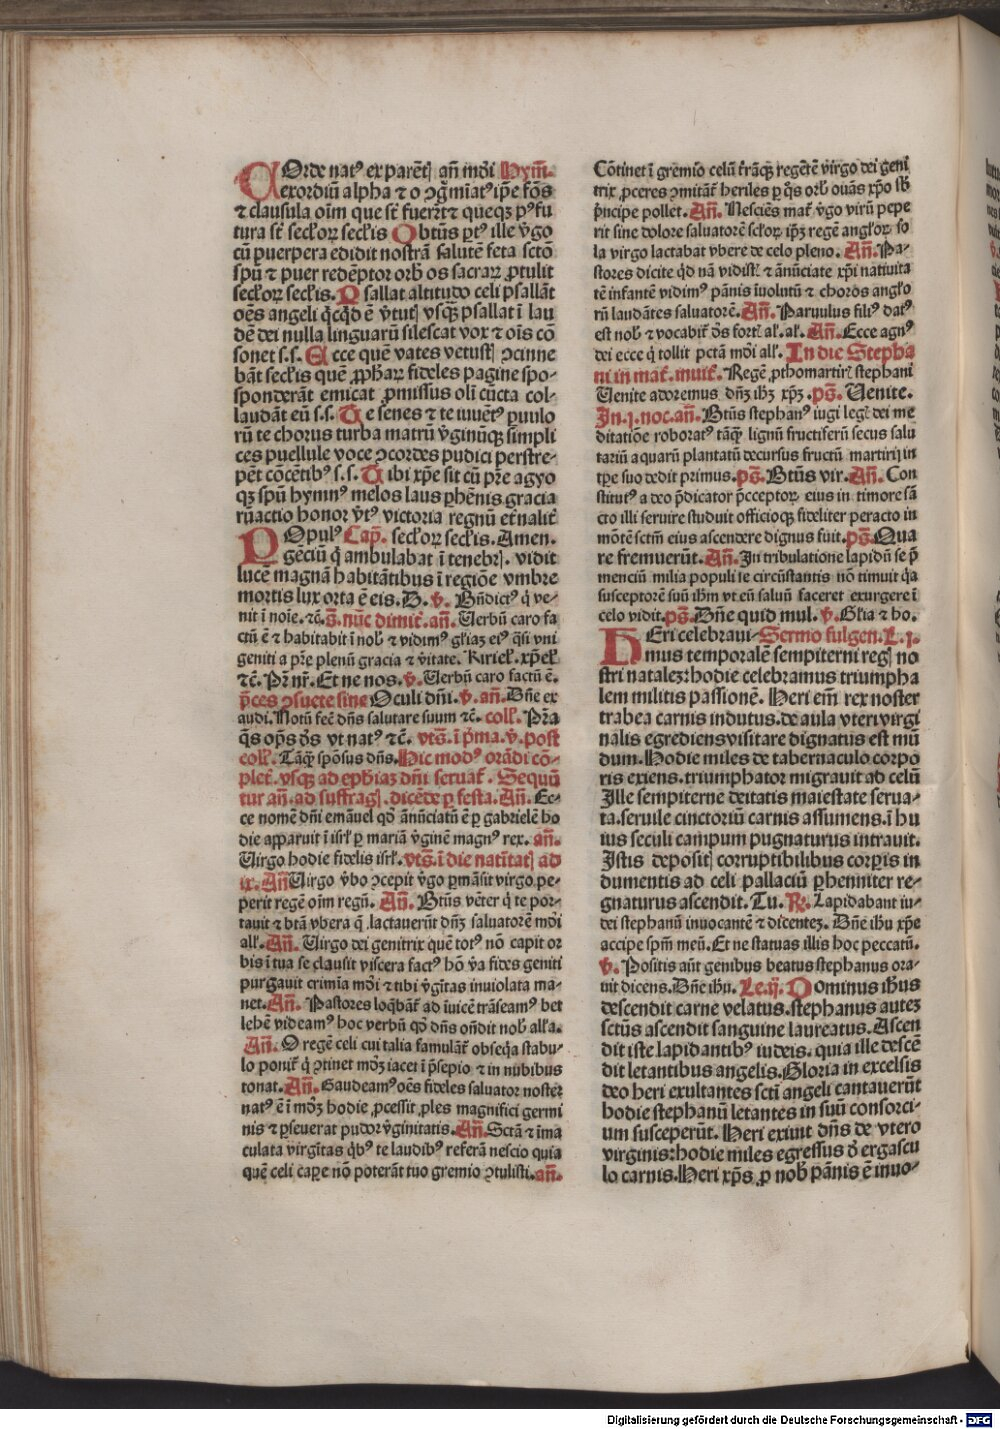 COrde natꝰ ex parētꝭ an̄ mūdi Hym̄.
exordiū alpha ⁊ o ꝯgͣmīatꝰ ip̄e fōs
⁊ clausula oīm que st̄ fuerūt ⁊ queqꝫ pꝰfu
tura st̄ seclo⁊ꝝ seclis Obtūs ꝑtꝰ ille v̄go
cū puerpera edidit nostrā salutē feta sctō
spū ⁊ puer redēptor orb̄ os sacraꝝ ꝓtulit
secloꝝ seclis. Psallat altitudo celi psallāt
oēs angeli qͥcqͥd ē v̄tutꝭ vsqꝫ psallat ī lau
dē dei nulla linguarū silescat vox ⁊ oīs cō
sonet s.s. Ecce quē vates vetustꝭ ꝯcinne
bāt seclis quē ꝓph̄aꝝ fideles pagine spo-
sponderāt emicat ꝓmissus oli cūcta col-
laudāt eū s.s. Te senes ⁊ te iuuētꝰ puulo
rū te chorus turba matrū v̄ginūqꝫ simpli
ces puellule voce ꝯcordes pudici perstre-
pēt cōcētibꝰ s.s. Tibi xp̄e sit cū pr̄e agyo
qꝫ spū hymnꝰ melos laus ꝑhēnis gracia
rū actio honor v̄tꝰ victoria regnū et̄nalit̄
POpulꝰ Cap̄. secloꝝ seclis. Amen.
gēciū qͥ ambulabat ī tenebrꝭ. vidit
lucē magnā habitātibus ī regiōe vmbre
mortis lux orta ē eis. D. v̄. Bn̄dictꝰ qͥ ve-
nit ī noīe. ⁊ē. s̄. nūc dimit̄. an̄. Verbū caro fa
ctū ē ⁊ habitabit ī nob̄ ⁊ vidimꝰ gl̄iaꝫ eiꝰ qͣsi vni
geniti a pr̄e plenū gracia ⁊ v̄itate. Kiriel̄. xp̄el̄
⁊ē. Pr̄ nr̄. Et ne nos. v̄. Verbū caro factū ē.
p̄ces ꝯsuete sine Oculi dn̄i. v̄. an̄. Dn̄e ex
audi. Notū fec̄ dn̄s salutare suum ⁊ē. coll̄. Pr̄a
qͣs op̄s d̄s vt natꝰ ⁊ē. vts̄. ī p̄ma. v̄. post
coll̄. Tāqͣ sp̄osus dn̄s. Hic modꝰ orādi cō-
plet̄. vsqꝫ ad ep̄hiaꝫ dn̄i seruat̄. Sequū
tur an̄. ad suffragꝭ. dicēde ꝑ festa. An̄. Ec-
ce nomē dn̄i emāuel qd̄ ānūciatū ē ꝑ gabrielē ho
die apparuit ī isrl̄ ꝑ mariā v̄ginē magnꝰ rex. an̄.
Virgo hodie fidelis isrl̄. vts̄. ī die natītatꝭ ad
ix. An̄ Virgo v̄bo ꝯcepit v̄go ꝑmāsit virgo pe-
perit regē oīm regū. An̄. Btūs vēter qͥ te por-
tauit ⁊ btā vbera q̄ lactauerūt dn̄ꝫ saluatorē mōi
all̄. An̄. Virgo dei genitrix quē totꝰ nō capit or
bis ī tua se clausit viscera factꝰ hō v̄a fides geniti
purgauit crimīa mōi ⁊ tibi v̄gītas inuiolata ma-
net. An̄. Pastores loqͣbāt̄ ad īuicē trāseamꝰ bet
lehē videamꝰ hoc verbū qd̄ dn̄s on̄dit nob̄ all̄a.
An̄. O regē celi cui talia famulāt̄ obseqͥa stabu-
lo ponit̄ qͥ ꝯtinet mōꝫ iacet ī p̄sepio ⁊ in nūbibus
tonat. An̄. Gaudeamꝰ oēs fideles saluator noster
natꝰ ē ī mōꝫ hodie ꝓcessit ꝓles magnifici germi
nis ⁊ ꝑseuerat pudor v̄ginitatis. An̄. Sctā ⁊ īma
culata virgītas qͥbꝰ te laudibꝰ referā nescio quia
quē celi caꝑe nō poterāt tuo gremio ꝯtulisti. an̄.
Cōtinet ī gremio celū t̄rāqꝫ regētē virgo dei geni
trix ꝓceres ꝯmitāt̄ heriles ꝑ qͦs orb̄ ouās xp̄o sb̄
p̄ncipe pollet. An̄. Nesciēs mat̄ v̄go virū pepe
rit sine dolore saluatorē scloꝝ ip̄ꝫ regē angl̄oꝝ so
la virgo lactabat vbere de celo pleno. An̄. Pa-
stores dicite qͥd nā vidist̄ ⁊ ānūciate xp̄i natiuita
tē infantē vidimꝰ pānis īuolutū ⁊ choros angl̄o
rū laudātes saluatorē. An̄. Paruulus filiꝰ datꝰ
est nob̄ ⁊ vocabit̄ d̄s fort̄ al̄. al̄. An̄. Ecce agnꝰ
dei ecce qͥ tollit pctā mōi all̄. In die Stepha
ni in mat̄. inuit̄. Regē ꝓthomartirꝭ stephani
Venite adoremus dn̄ꝫ ih̄ꝫ xp̄ꝫ. ps̄. Venite.
In. j. noc. an̄. Btūs stephanꝰ iugi legꝭ dei me
ditatiōe roboratꝰ tāqͣ lignū fructiferū secus salu
tariū aquarū plantatū decursus fructū martirij in
tp̄e suo dedit primus. ps̄. Btūs vir. An̄. Con
stitutꝰ a deo p̄dicator p̄ceptoꝝ eius in timore sā
cto illi seruire studuit officioqꝫ fideliter peracto in
mōtē sctm̄ eius ascendere dignus fuit. ps̄. Qua
re fremuerūt. An̄. In tribulatione lapidū se p̄
menciū milia populi te circūstantis nō timuit qͥa
susceptorē suū ih̄m vt eū saluū faceret exurgere ī
celo vidit. ps̄. Dn̄e quid mul. v̄. Gl̄ia ⁊ ho.
HEri celebraui- Sermo fulgen. L. j.
mus temporalē sempiterni regꝭ no
stri natalez: hodie celebramus triumpha
lem militis passionē. Heri em̄ rex noster
trabea carnis indutus. de aula vteri virgi
nalis egrediens visitare dignatus est mū
dum. Hodie miles de tabernaculo corpo
ris exiens. triumphator migrauit ad celū
Ille sempiterne deitatis maiestate serua-
ta. seruile cinctoriū carnis assumens. ī hu
ius seculi campum pugnaturus intrauit.
Istis depositꝭ corruptibilibus corꝑis in
dumentis ad celi pallaciū ꝑhenniter re-
gnaturus ascendit. Tu. R̄. Lapidabant iu-
dei stephanū inuocantē ⁊ dicentez. Dn̄e ihu xp̄e
accipe spm̄ meū. Et ne statuas illis hoc peccatū.
v̄. Positis aūt genibus beatus stephanus ora-
uit dicens. Dn̄e ihū. Le. ij. Dominus ih̄us
descendit carne velatus. stephanus autez
sctūs ascendit sanguine laureatus. Ascen
dit iste lapidantibꝰ iudeis. quia ille descē
dit letantibus angelis. Gloria in excelsis
deo heri exultantes sctī angeli cantauerūt
hodie stephanū letantes in suū consorci-
um susceperūt. Heri exiuit dn̄s de vtero
virginis: hodie miles egressus d̄ ergastu
lo carnis. Heri xp̄s ꝓ nob̄ pānis ē inuo-
Digitalisierung gefördert durch die Deutsche Forschungsgemeinschaft - DFG